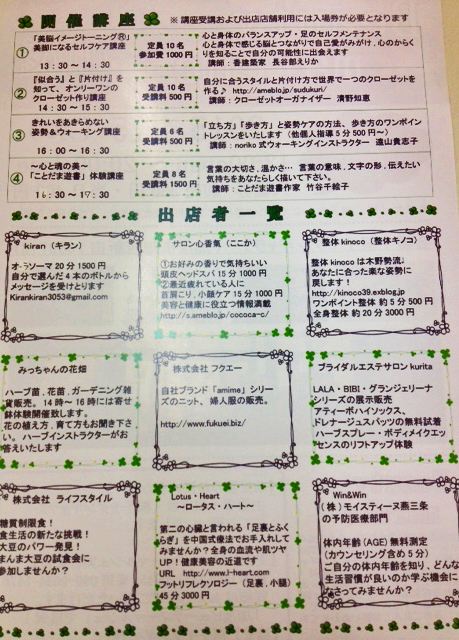 開催講座 ※ 講座受講および出店店舗利用には入場券が必要となります
① 「美脳イメージトーニングⓇ」
美脚になるセルフケア講座
13:30 ～ 14:30
定員 10 名
参加費 1000 円
心と身体のバランスアップ・足のセルフメンテナンス
心と身体で感じる脳とつながりで自己愛がみがけ、心のからく
りを知ることで自分の可能性に出会えます
講師:香建築家 長谷部えりか
② 『似合う』と『片付け』を
知って、オンリーワンの
クローゼット作り講座
14:30 ～ 15:30
定員 10 名
受講料 500 円
自分に合うスタイルと片付け方で世界で一つのクローゼットを
作る♪ http://ameblo.jp/sudukuri/
講師:クローゼットオーガナイザー 清野知恵
③ きれいをあきらめない
姿勢＆ウォーキング講座
16:00 ～ 16:30
定員 6 名
受講料 500 円
「立ち方」「歩き方」と姿勢ケアの方法、歩き方のワンポイン
トレッスンをいたします（他個人指導 5 分 500 円～）
講師:noriko 式ウォーキングインストラクター 遠山貴志子
④ ～心と魂の美～
「ことだま遊書」体験講座
16:30 ～ 17:30
定員 8 名
受講料 1500 円
言葉の大切さ、温かさ… 言葉の意味、文字の形、伝えたい
気持ちをあなたらしく描いて下さい。
講師:ことだま遊書作家 竹谷千絵子
出店者一覧
kiran（キラン）
オーラソーマ 20 分 1500 円
自分で選んだ 4 本のボトルから
メッセージを受けとります
Kirankiran3053@gmail.com
サロン心香氣（ここか）
①お好みの香りで気持ちいい
頭皮ヘッドスパ 15 分 1000 円
②最近疲れている人に
首肩こり、小顔ケア 15 分 1000 円
美容と健康に役立つ情報満載
http://s.ameblo.jp/cococa-c/
整体 kinoco（整体キノコ）
整体 kinoco は木野勢流。
あなたに合った楽な姿勢に
戻します！
http://kinoco39.exblog.jp
ワンポイント整体 約 5 分 500 円
全身整体 約 20 分 3000 円
みっちゃんの花畑
ハーブ苗、花苗、ガーデニング雑
貨販売。14 時～16 時には寄せ
鉢体験開催致します。
花の植え方、育て方もお聞き下さ
い。ハーブインストラクターがお
答えいたします
株式会社 フクエー
自社ブランド「amime」シリー
ズのニット、婦人服の販売。
http://www.fukuei.biz/
ブライダルエステサロン kurita
LALA・BIBI・グランジェリーナ
シリーズの展示販売
アティーボハイソックス、
ドレナージュスパッツの無料試着
ハーブスプレー・ボディメイクエッ
センスのリフトアップ体験
株式会社 ライフスタイル
糖質制限食！
食生活の新たな挑戦！
大豆のパワー発見！
まんま大豆の試食会に
参加しませんか？
Lotus・Heart
～ロータス・ハート～
第二の心臓と言われる「足裏とふく
らぎ」を中国式療法でお手入れして
みませんか？全身の血流や肌ツヤ
UP！健康美容の近道です
URL http://www.l-heart.com
フットリフレクソロジー（足裏、小腿）
45 分 3000 円
Win&Win
（株）モイスティーヌ燕三条
の予防医療部門
体内年齢（AGE）無料測定
（カウンセリング含め 5 分）
ご自分の体内年齢を知り、どんな
生活習慣が良いのか学ぶ機会に
なさってみませんか？